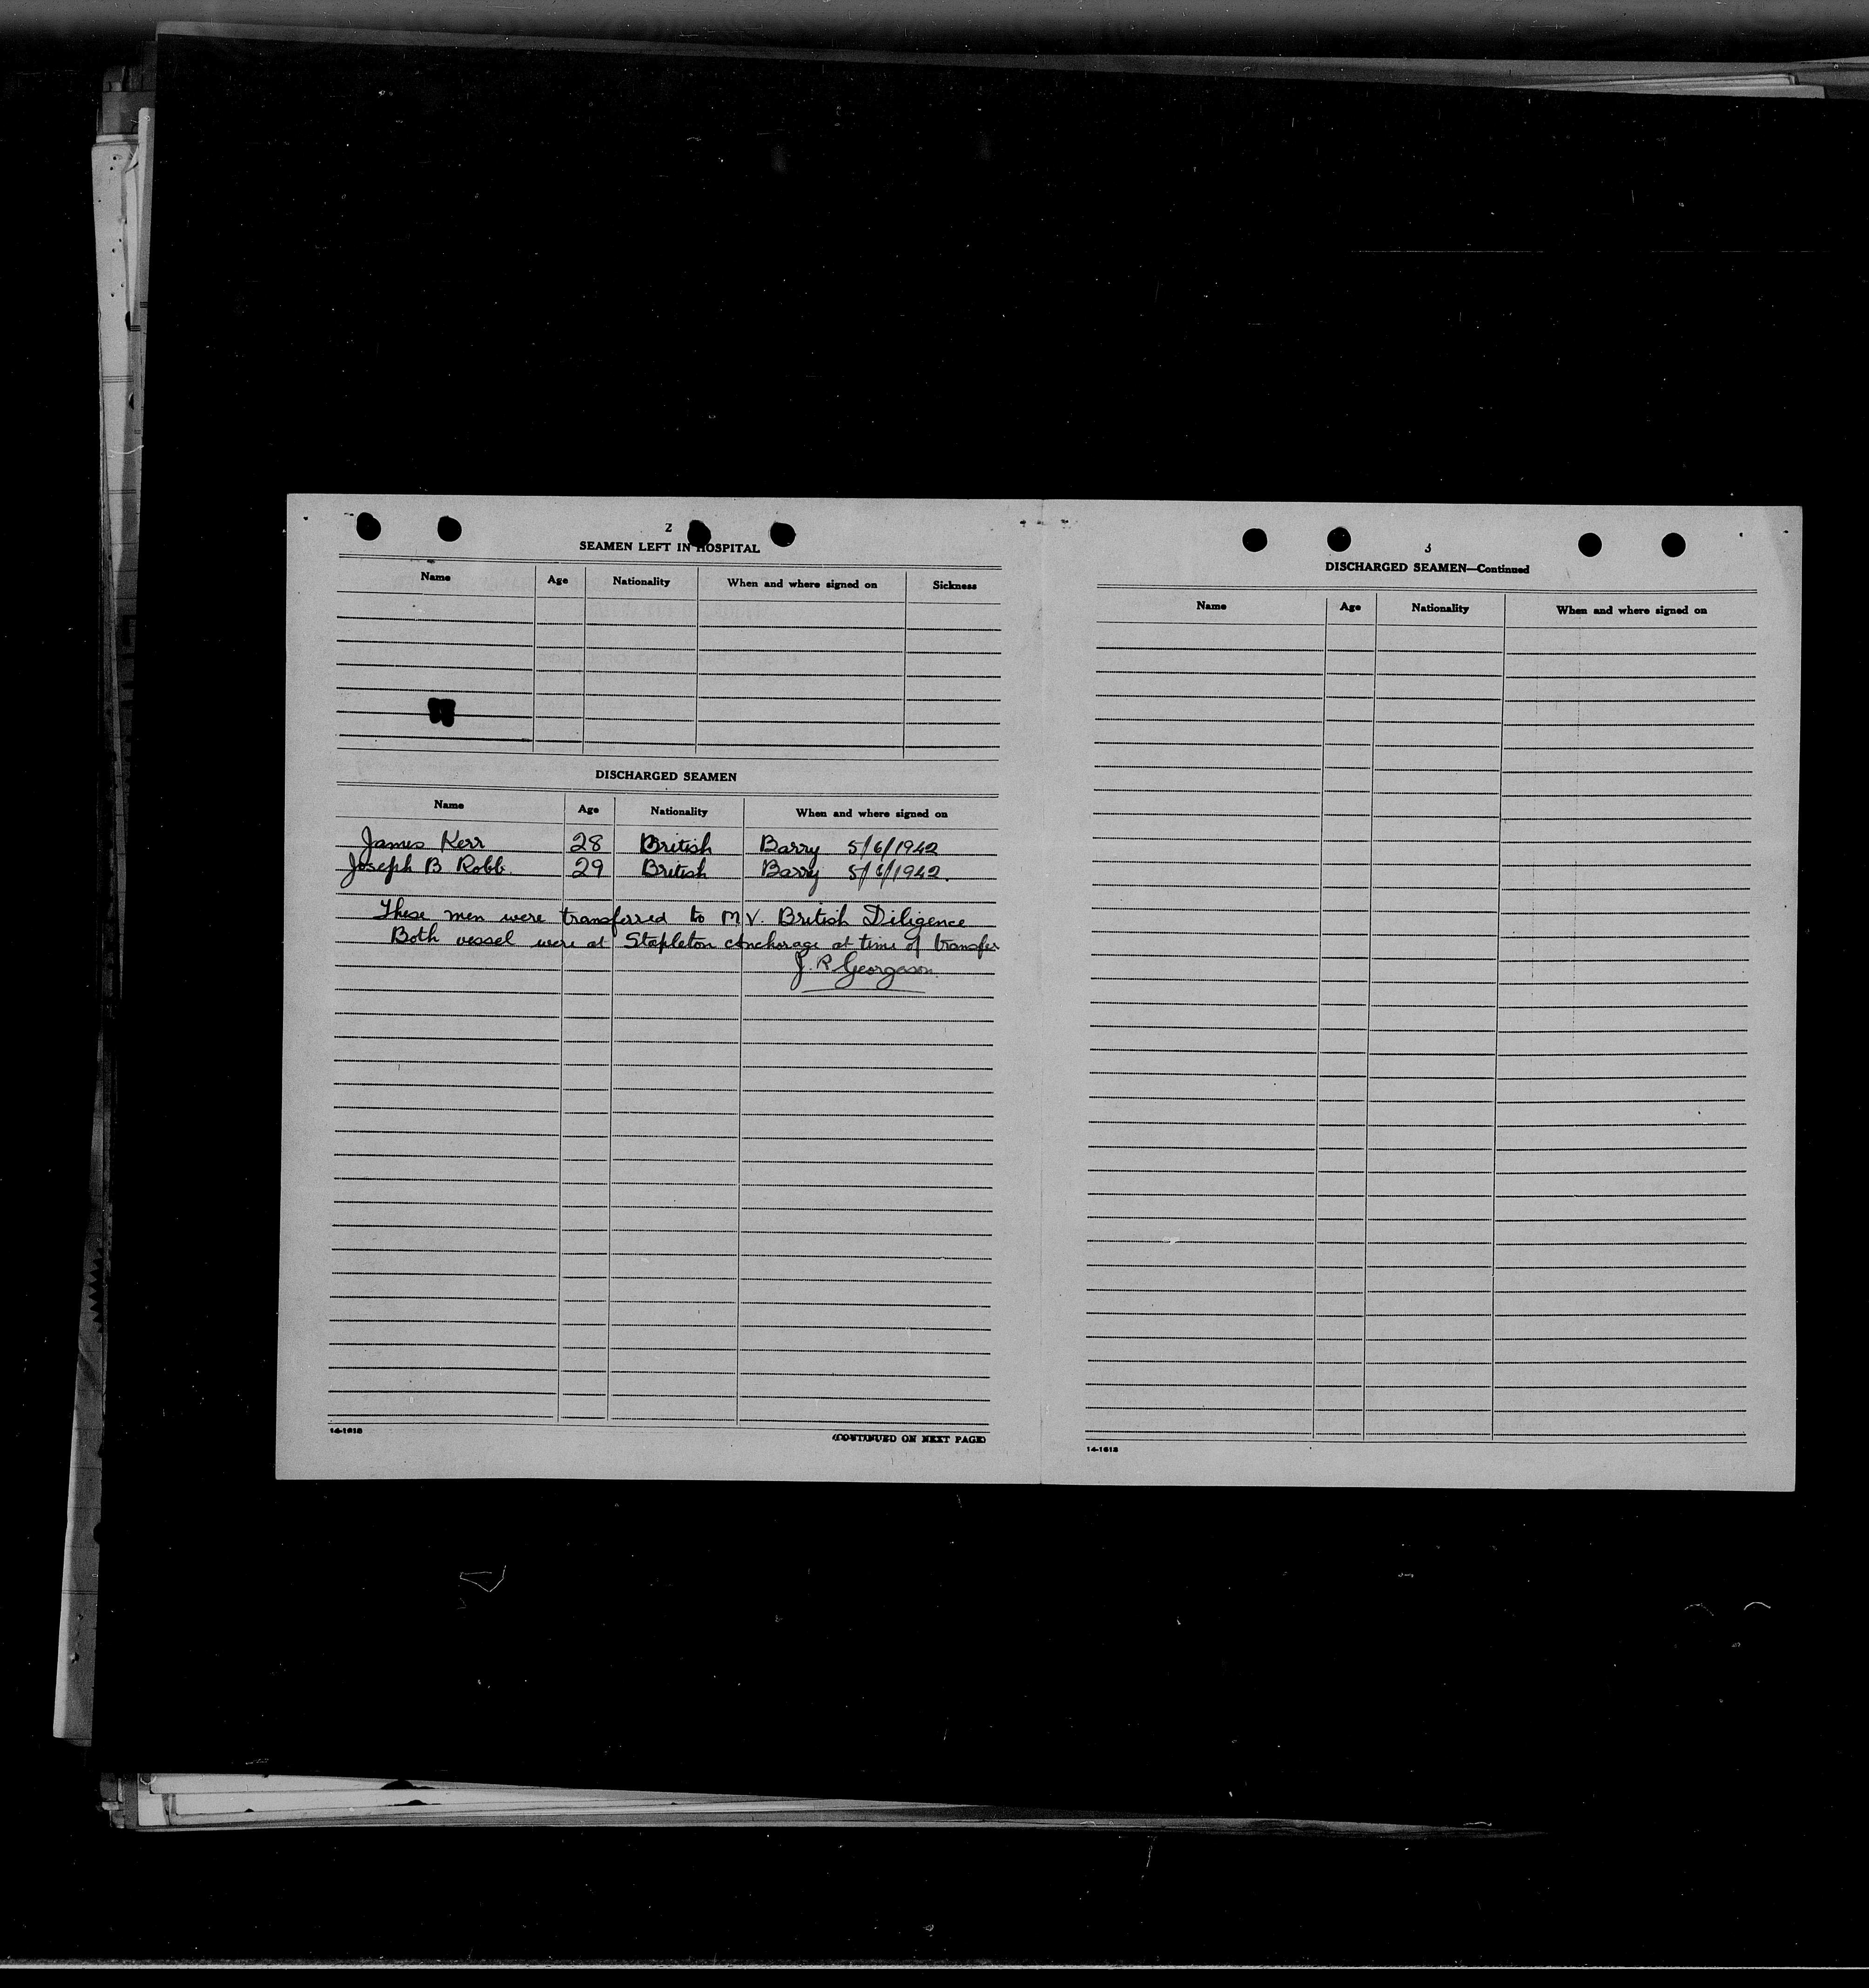 2
SEAMEN LEFT IN HOSPITAL
Name Age Nationality When and where signed on Sickness
DISCHARGED SEAMEN
Name Age Nationality When and where signed on
James Kerr 28 British Barry 5/6/1942
Joseph B Robb. 29 British Barry 5/6/1942.
These men were transferred to M.V. British Diligence
Both vessel were at Stapleton Anchorage at time of transfer
J. R Georgeson
14-1618
(CONTINUED ON NEXT PAGE)
3
DISCHARGED SEAMEN—Continued
Name Age Nationality When and where signed on
14-1618